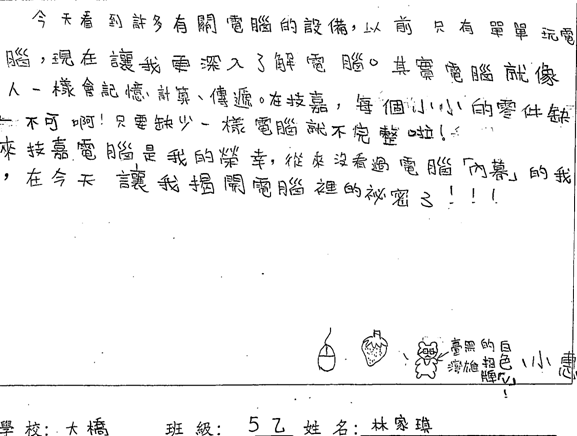 今天看到許多有關電腦的設備,以前只有單單玩電
腦,現在讓我更深入了解電腦。其實電腦就像
人一樣會記憶、計算、傳遞。在技嘉,每個小小的零件缺
一不可啊!只要缺少一樣電腦就不完整啦!
來技嘉電腦是我的榮幸,從來沒看過電腦「內幕」的我
,在今天讓我揭開電腦裡的祕密了!!!
臺黑的白
灣雄招色
牌「V」!
小惠
學校:大橋 班級:5乙 姓名:林家瑱